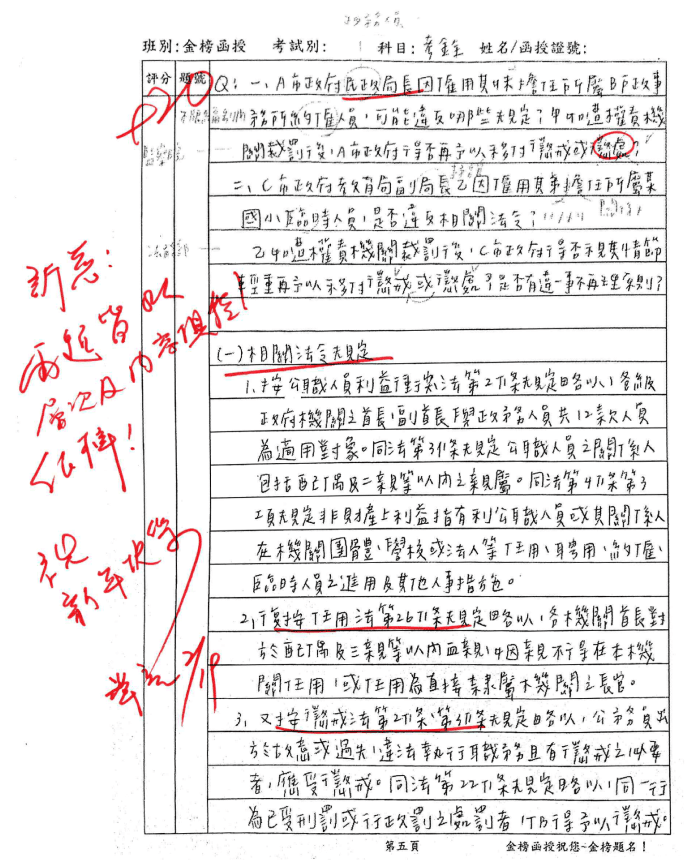 政務人員
班別:金榜函授 考試別: 科目:考銓 姓名/函授證號:
評分 題號
+20
Q:一、A市政府民政局長因僱用其妹擔任所屬B戶政事
務所約僱人員,可能違反哪些規定?甲如遭權責機
關裁罰後,A市政府得否再予以移付懲戒或懲處?
二、C市政府教育局副局長乙因僱用其弟擔任所屬某
國小臨時人員,是否違反相關法令?
乙如遭權責機關裁罰後,C市政府得否視其情節
輕重再予以移付懲戒或懲處?是否有違一事不再理原則?
(一)相關法令規定
1.按公職人員利益衝突法第2條規定略以,各級
政府機關之首長、副首長與政務人員共12款人員
為適用對象。同法第3條規定公職人員之關係人
包括配偶及二親等以內之親屬。同法第4條第3
項規定非財產上利益指有利公職人員或其關係人
在機關團體、學校或法人等任用、聘用、約僱、
臨時人員之進用及其他人事措施。
2.復按任用法第26條規定略以,各機關首長對
於配偶及三親等以內血親、姻親不得在本機
關任用,或任用為直接隸屬機關之長官。
3.又按懲戒法第2條、第3條規定略以,公務員出
於故意或過失,違法執行職務且有懲戒之必要
者,應受懲戒。同法第22條規定略以,同一行
為已受刑罰或行政罰之處罰者,仍得予以懲戒。
兩題皆以
層次及內容
依樣!
祝
新年快樂
2/19
第五頁 金榜函授祝您~金榜題名!